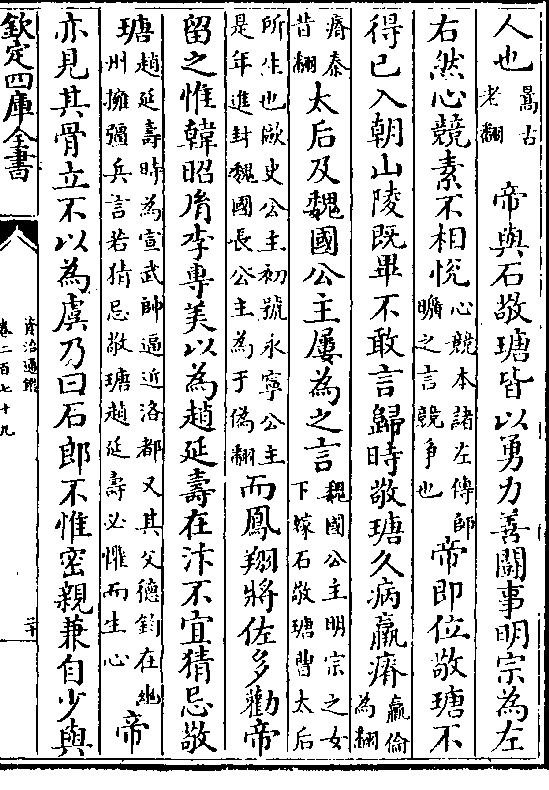 人也暠古老翻 帝與石敬瑭皆以勇力善鬬事明宗為左
右然心競素不相悦心競本諸左傳師曠之言競争也帝即位敬瑭不
得已入朝山陵既畢不敢言歸時敬瑭久病羸瘠羸倫為翻
瘠秦昔翻太后及魏國公主屢為之言魏國公主明宗之女下嫁石敬瑭曹太后
所生也歐史公主初號永寧公主是年進封魏國長公主為于偽翻而鳳翔將佐多勸帝
留之惟韓昭胤李專美以為趙延壽在汴不宜猜忌敬
瑭趙延壽時為宣武帥逼近洛都又其父德鈞在幽州擁彊兵言若猜忌敬瑭趙延壽必懼而生心帝
亦見其骨立不以為虞乃曰石郎不惟密親兼自少與
欽定四庫全書
資治通鑑
卷二百七十九
二十